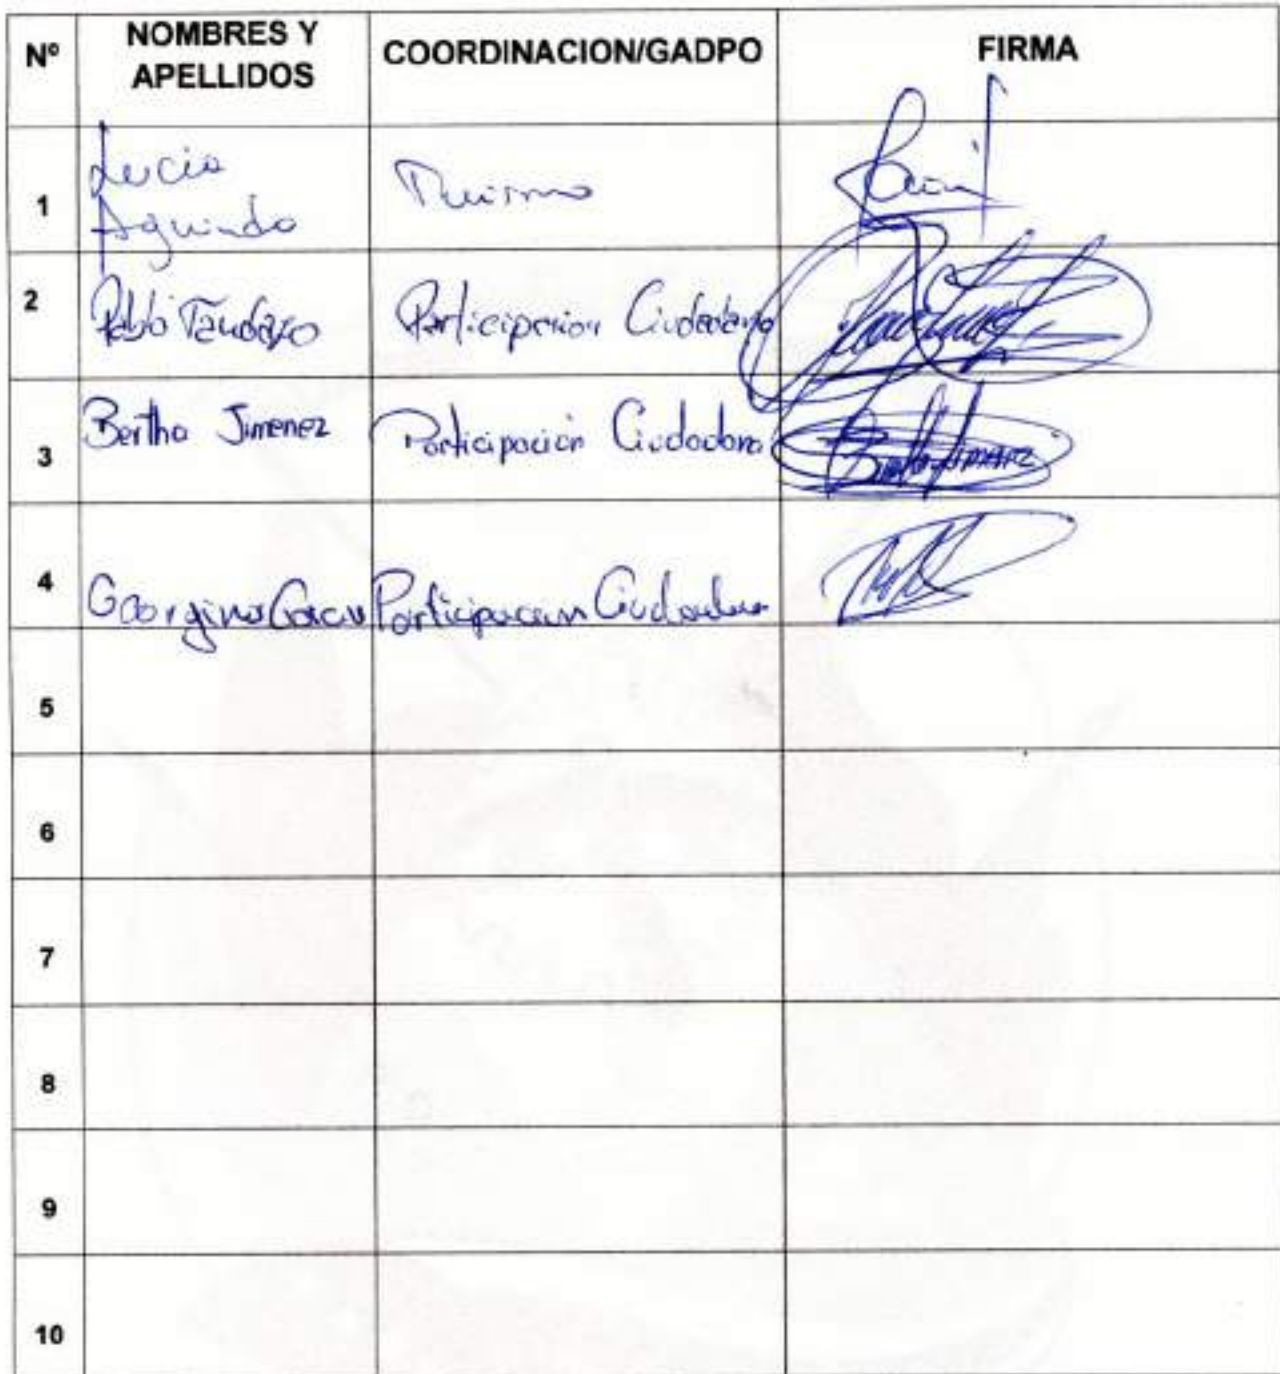 Nº NOMBRES Y APELLIDOS COORDINACION/GADPO FIRMA
1 Lucia Aguinda Turismo
2 Pablo Tandazo Participacion Ciudadana
3 Bertha Jimenez Participación Ciudadana
4 Georgina Garcia Participacion Ciudadana
5
6
7
8
9
10